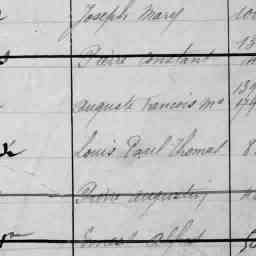 Joseph Mary
Pierre Constant
Auguste Francois Ma
Louis Paul Thomas 8
Pierre Augustin
Ernest Alfred